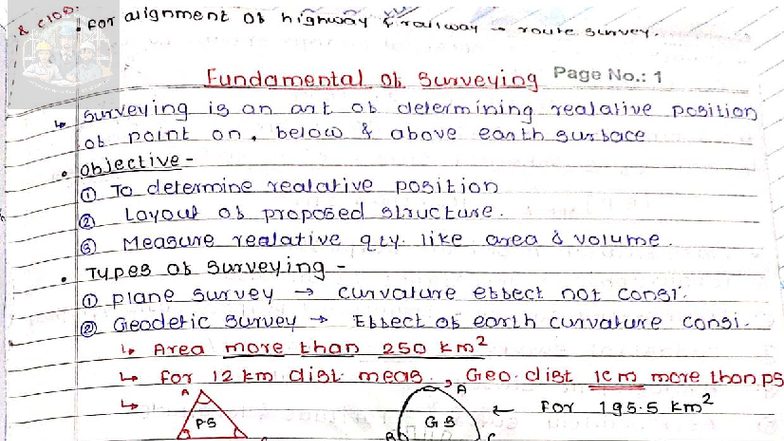 & c108.
• For alignment of highway & railway → route survey.
Fundamental of Surveying Page No.: 1
↳ Surveying is an art of determining realative position
of point on, below & above earth surface
• Objective -
① To determine realative position
② Layout of proposed structure.
③ Measure realative qty. like area & volume.
• Types of Surveying -
① plane survey → curvature effect not consi.
② Geodetic survey → Effect of earth curvature consi.
↳ Area more than 250 km²
↳ for 12 km dist. meas., Geo. dist 1cm more than ps
↳ A PS A GS B C ← For 195.5 km²